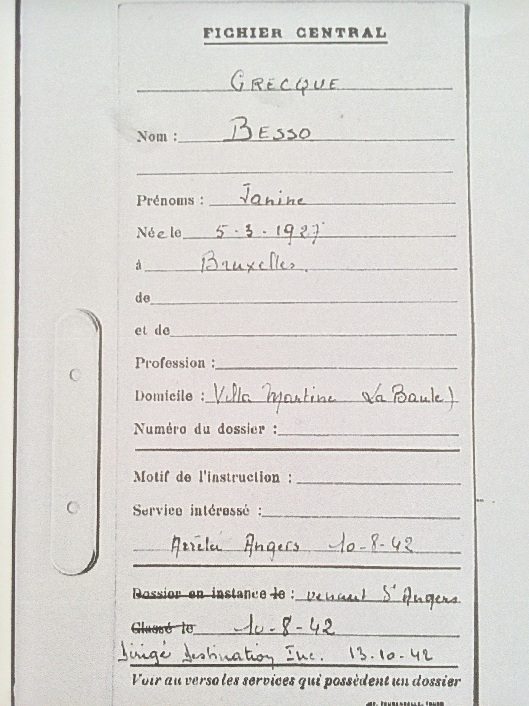 FICHIER CENTRAL
GRECQUE
Nom : BESSO
Prénoms : Janine
Née le 5-3-1927
à Bruxelles.
de
et de
Profession :
Domicile : Villa Martine La Baule)
Numéro du dossier :
Motif de l'instruction :
Service intéressé :
Arrêtée Angers 10-8-42
Dossier en instance le : venant d'Angers
Classé le 10-8-42
Dirigé destination Inc. 13-10-42
Voir au verso les services qui possèdent un dossier